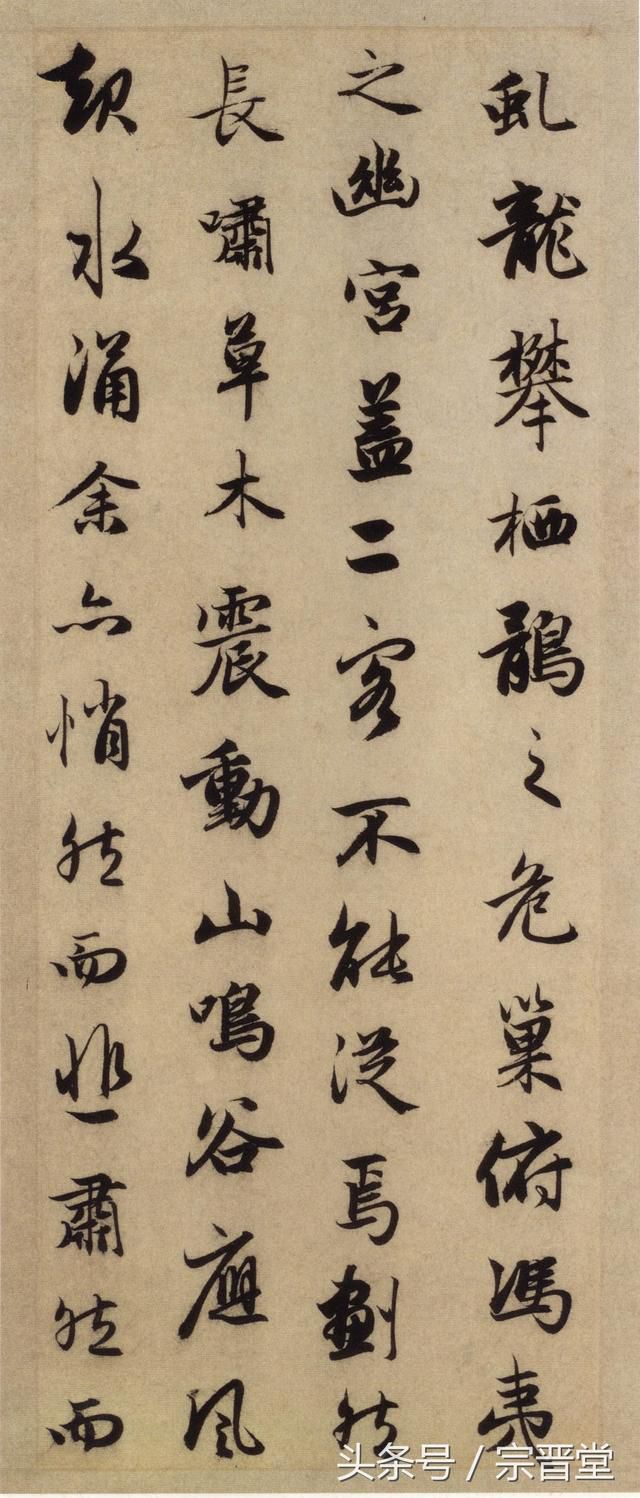 虬龍攀栖鶻之危巢俯馮夷
之幽宮蓋二客不能從焉劃然
長嘯草木震動山鳴谷應風
起水涌余亦悄然而悲肅然而
头条号 / 宗晋堂